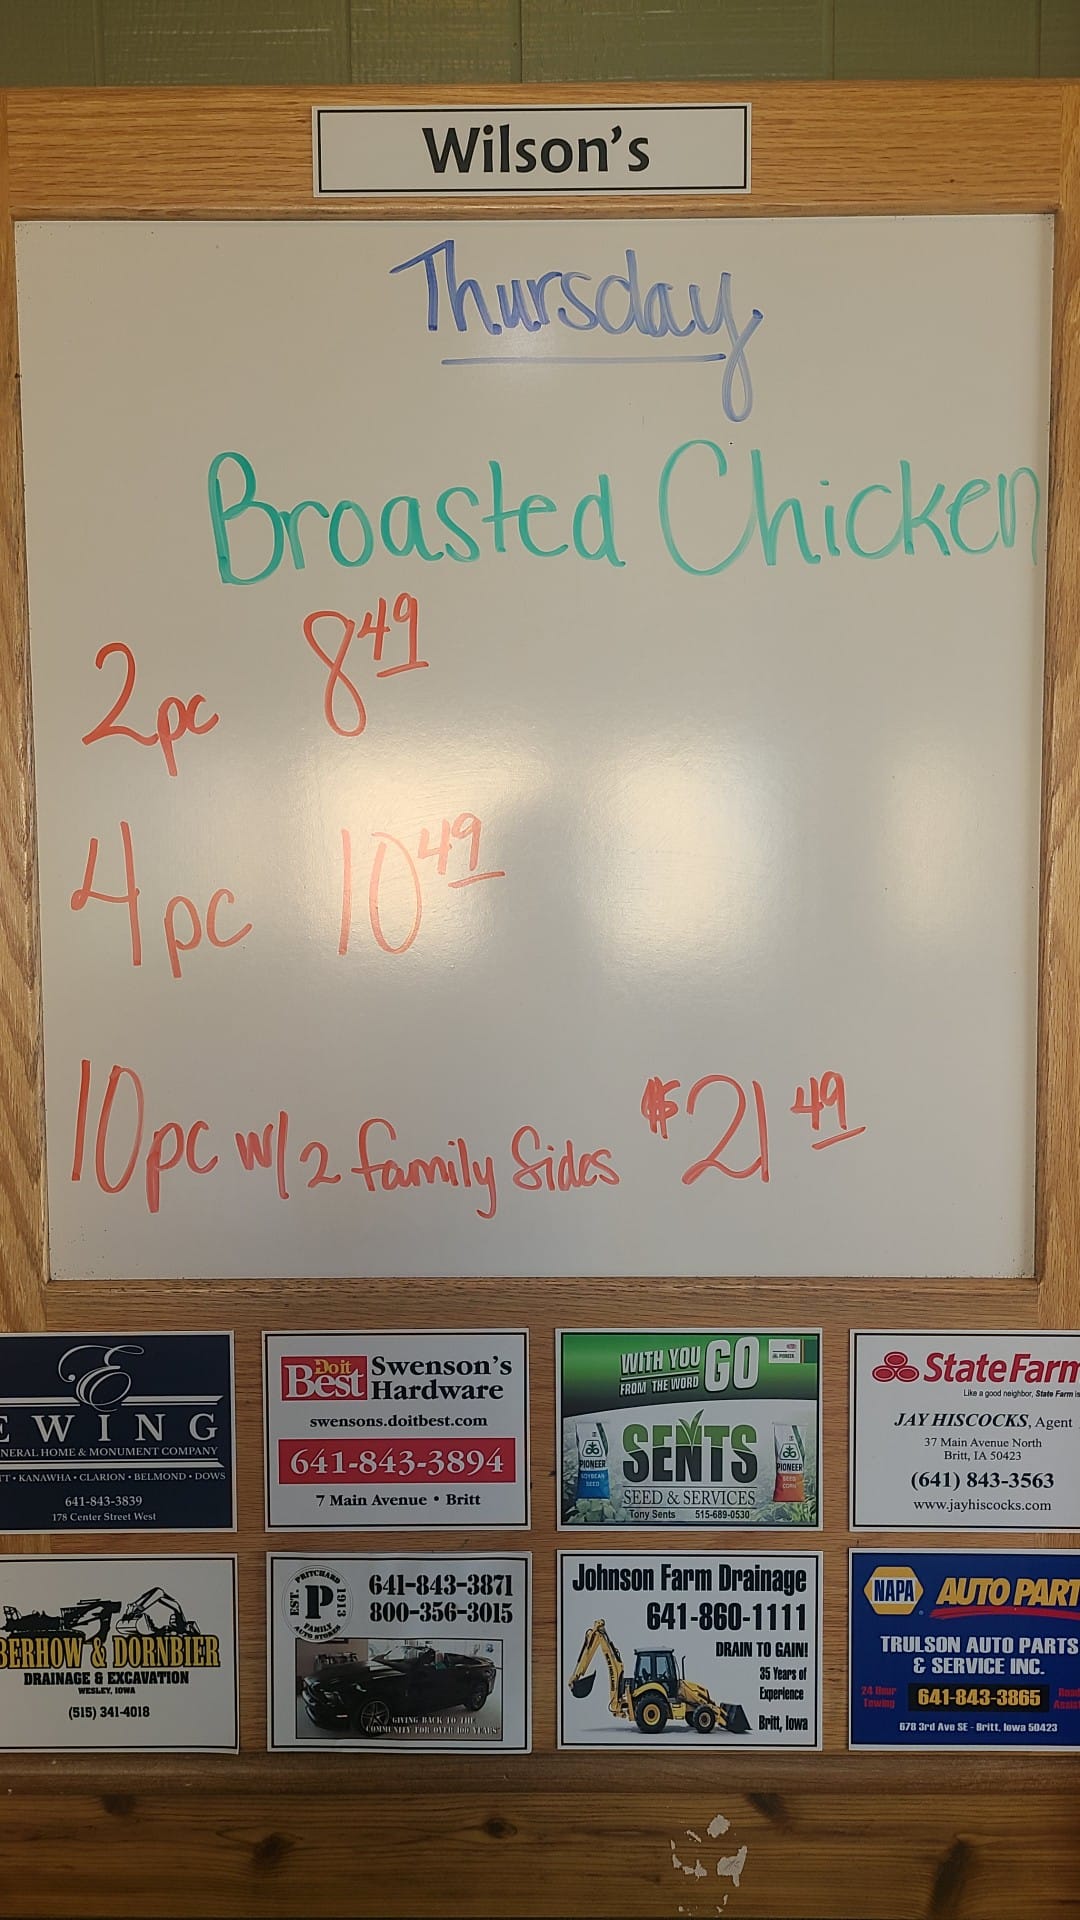 Wilson's
Thursday
Broasted Chicken
2pc 8 49
4pc 10 49
10pc w/ 2 family Sides $21 49
E
EWING
NERAL HOME & MONUMENT COMPANY
TT • KANAWHA • CLARION • BELMOND • DOWS
641-843-3839
178 Center Street West
Do it Best
Swenson's
Hardware
swensons.doitbest.com
641-843-3894
7 Main Avenue • Britt
WITH YOU
FROM THE WORD
GO
PIONEER
SENTS
PIONEER
SOYBEAN SEED
PIONEER
SEED CORN
SEED & SERVICES
Tony Sents 515-689-0530
State Farm
Like a good neighbor, State Farm is
JAY HISCOCKS, Agent
37 Main Avenue North
Britt, IA 50423
(641) 843-3563
www.jayhiscocks.com
BERHOW & DORNBIER
DRAINAGE & EXCAVATION
WESLEY, IOWA
(515) 341-4018
PRITCHARD
EST. P 1913
FAMILY
AUTO STORES
641-843-3871
800-356-3015
GIVING BACK TO THE
COMMUNITY FOR OVER 100 YEARS"
Johnson Farm Drainage
641-860-1111
DRAIN TO GAIN!
35 Years of
Experience
Britt, Iowa
NAPA AUTO PART
TRULSON AUTO PARTS
& SERVICE INC.
24 Hour
Towing
641-843-3865
Road
Assist
678 3rd Ave SE - Britt, Iowa 50423